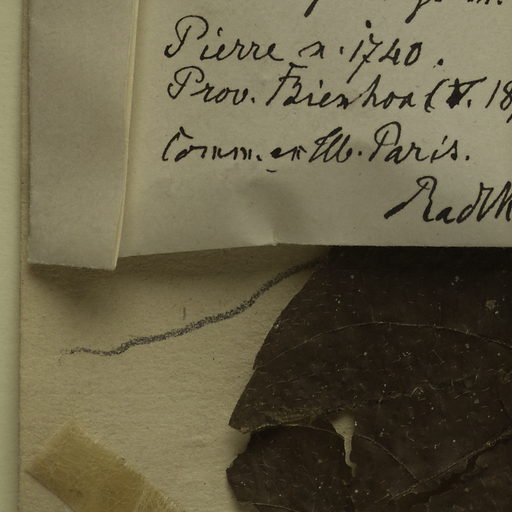 Pierre n. 1740.
Prov. Bienhoa (V. 18
Comm. ex Hb. Paris.
Radlk